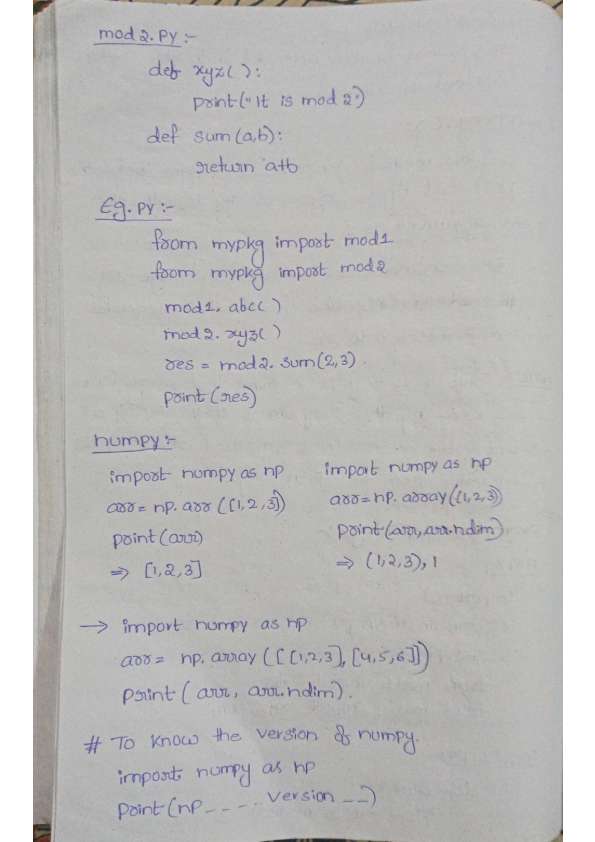 mod2.py:-
def xyz():
print("It is mod2")
def sum(a,b):
return a+b
Eg.py:-
from mypkg import mod1
from mypkg import mod2
mod1.abc()
mod2.xyz()
res = mod2.sum(2,3)
print(res)
numpy:-
import numpy as np
arr = np.arr([1,2,3])
print(arr)
⇒ [1,2,3]
import numpy as np
arr = np.array([1,2,3])
print(arr,arr.ndim)
⇒ (1,2,3),1
→ import numpy as np
arr = np.array([[1,2,3],[4,5,6]])
print(arr, arr.ndim).
# To know the version of numpy.
import numpy as np
print(np_ _ . _ .. version _ _)